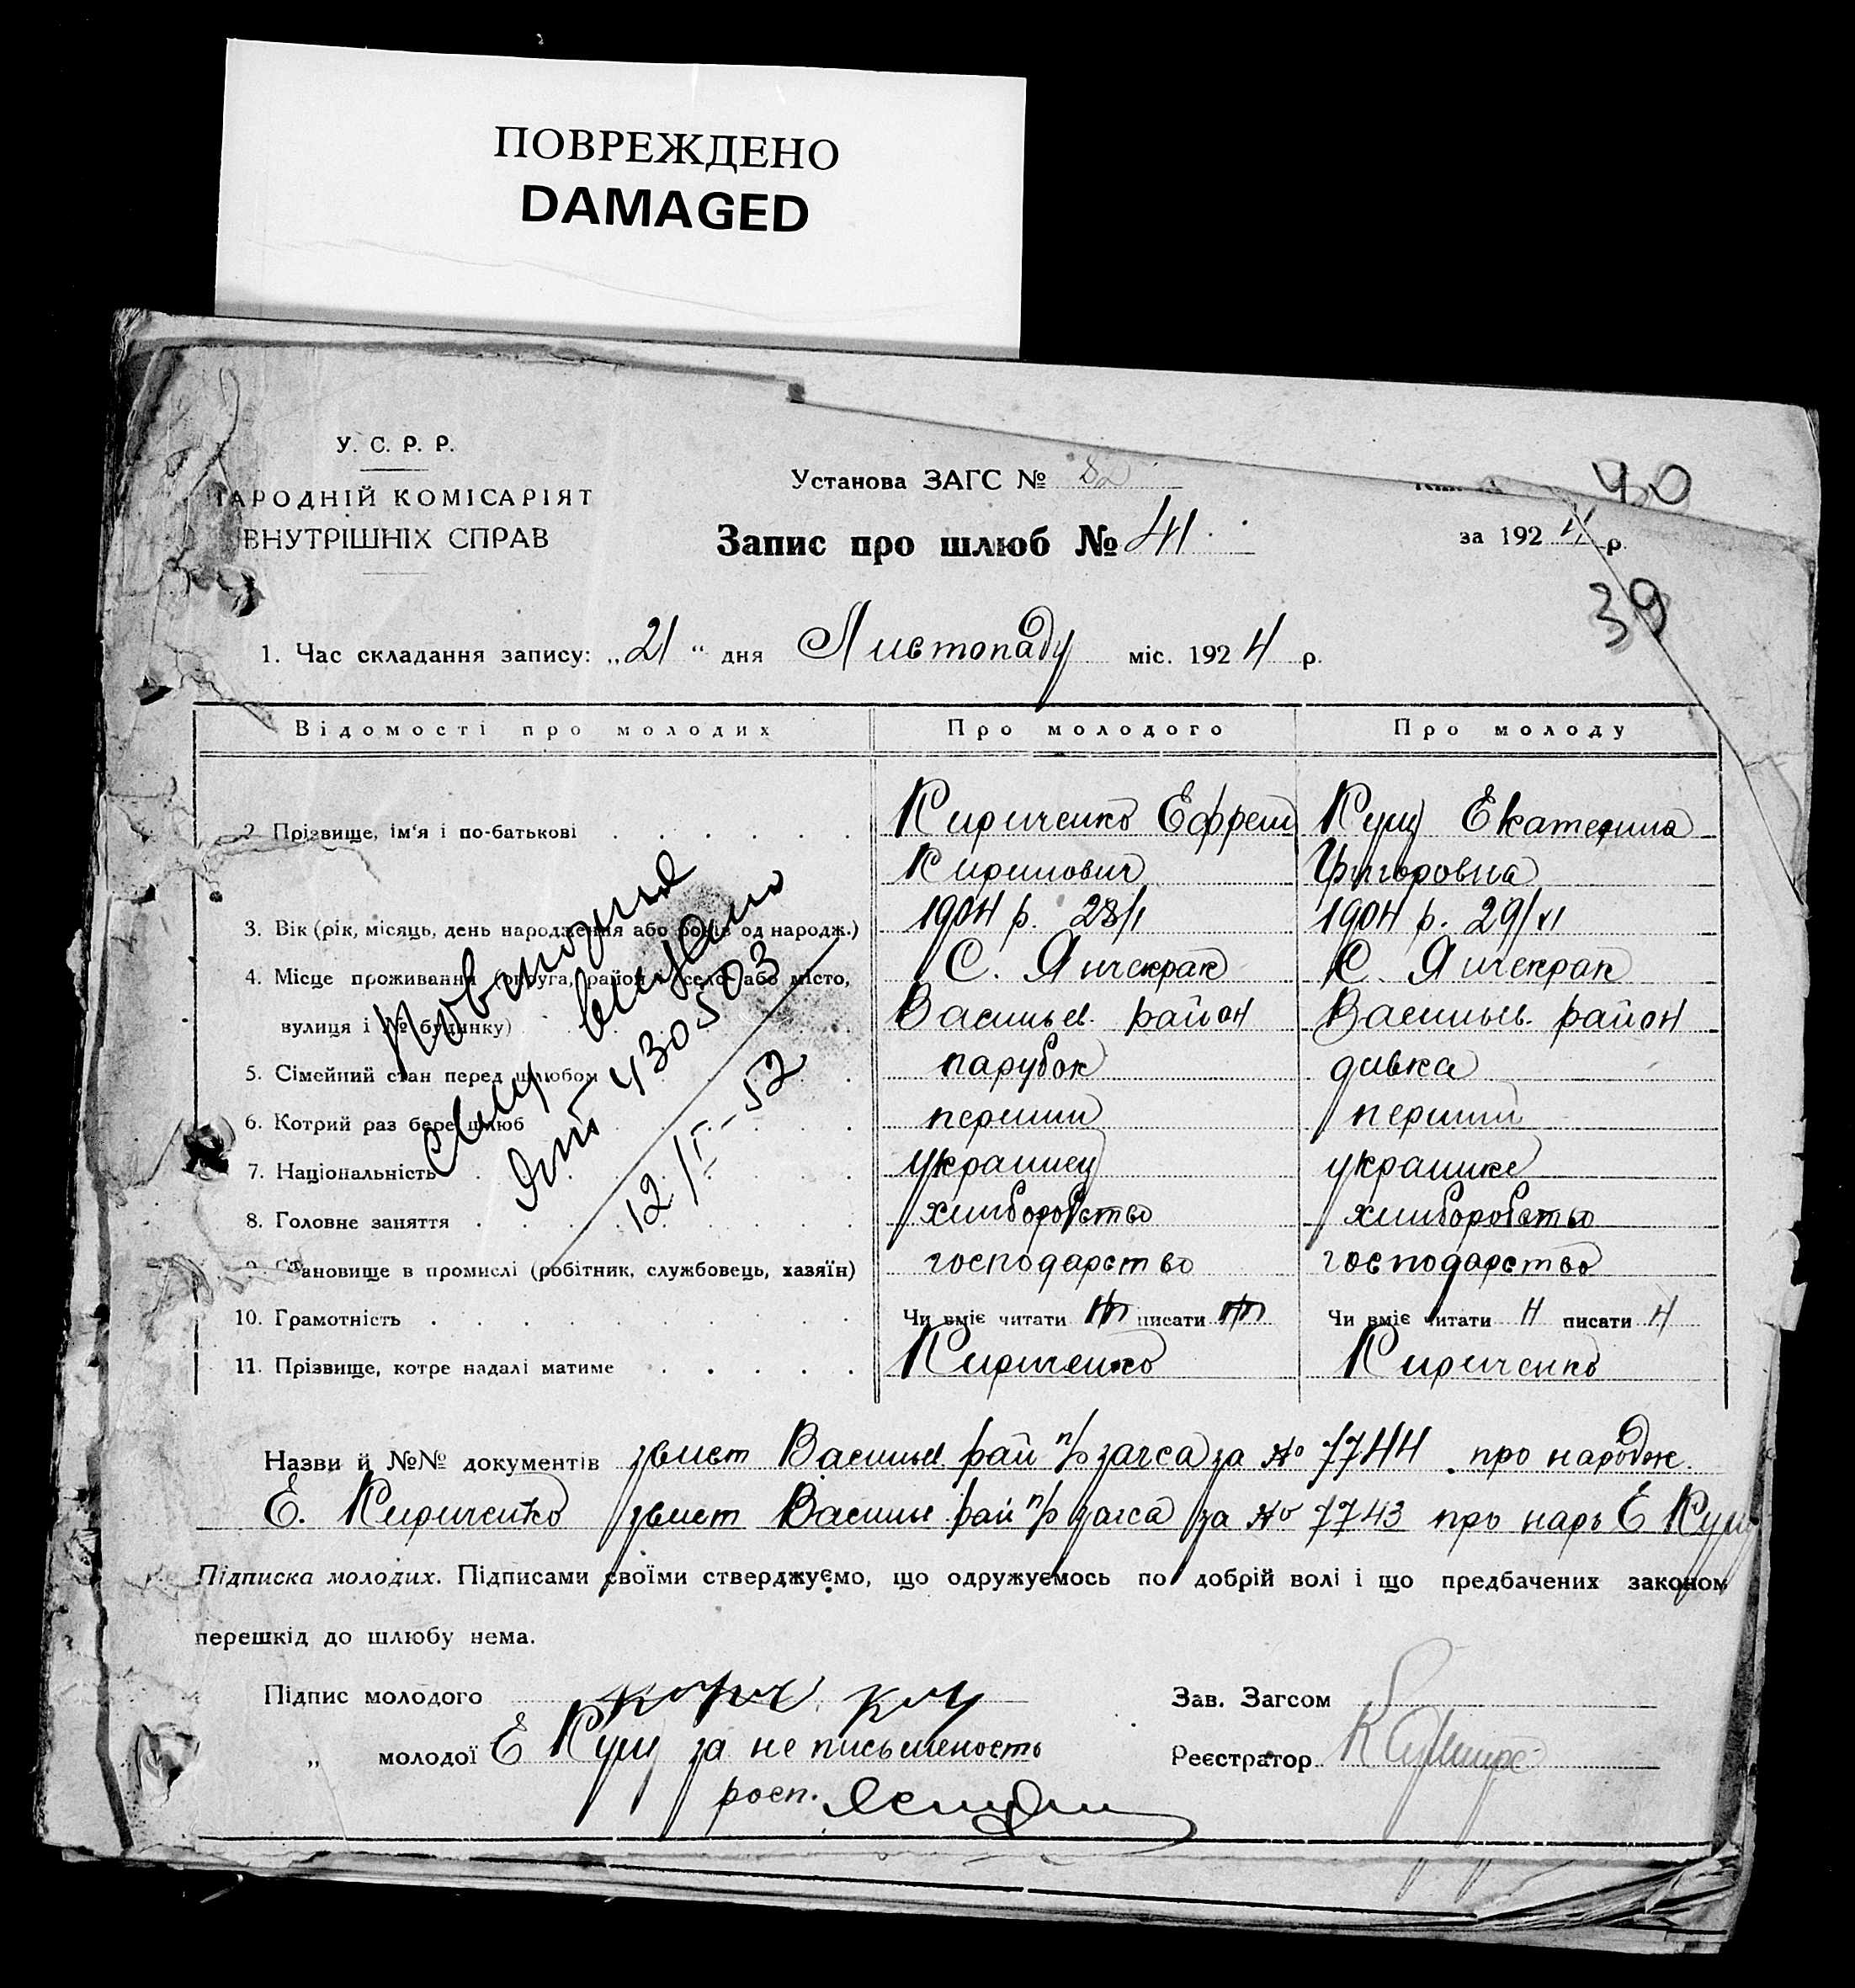 ПОВРЕЖДЕНО
DAMAGED
У. С. Р. Р.
АРОДНІЙ КОМІСАРІЯТ
ВНУТРІШНІХ СПРАВ
Установа ЗАГС №
40
Запис про шлюб № 41
за 1924 р.
39
1. Час складання запису: „21“ дня Листопаду міс. 1924 р.
Відомості про молодих Про молодого Про молоду
2. Прізвище, ім'я і по-батькові Кириченко Ефрем Кущ Екатерина
Кирилович Григоровна
3. Вік (рік, місяць, день народження або років од народж.) 1904 р. 28/1 1904 р. 29/XI
4. Місце проживання (округа, район і село або місто, С. Янчекрак С. Янчекрак
вулиця і № будинку) Васильев. район Васильев. район
5. Сімейний стан перед шлюбом парубок дивка
6. Котрий раз бере шлюб перший перший
7. Національність украинец украинка
8. Головне заняття хлиборобство хлиборобство
9. Становище в промислі (робітник, службовець, хазяїн) господарство господарство
10. Грамотність Чи вміє читати писати Чи вміє читати Н писати Н
11. Прізвище, котре надалі матиме Кириченко Кириченко
430503
12/I-52
Назви й №№ документів звист Васильев рай п/р загса за № 7744 про народж.
Е. Кириченко звист Васильв рай п/р загса за № 7743 про нар Е Кущ
Підписка молодих. Підписами своїми стверджуємо, що одружуємось по добрій волі і що предбачених законом
перешкід до шлюбу нема.
Підпис молодого
Зав. Загсом
„ молодої Е Кущ за не письменость
Реєстратор
росп.